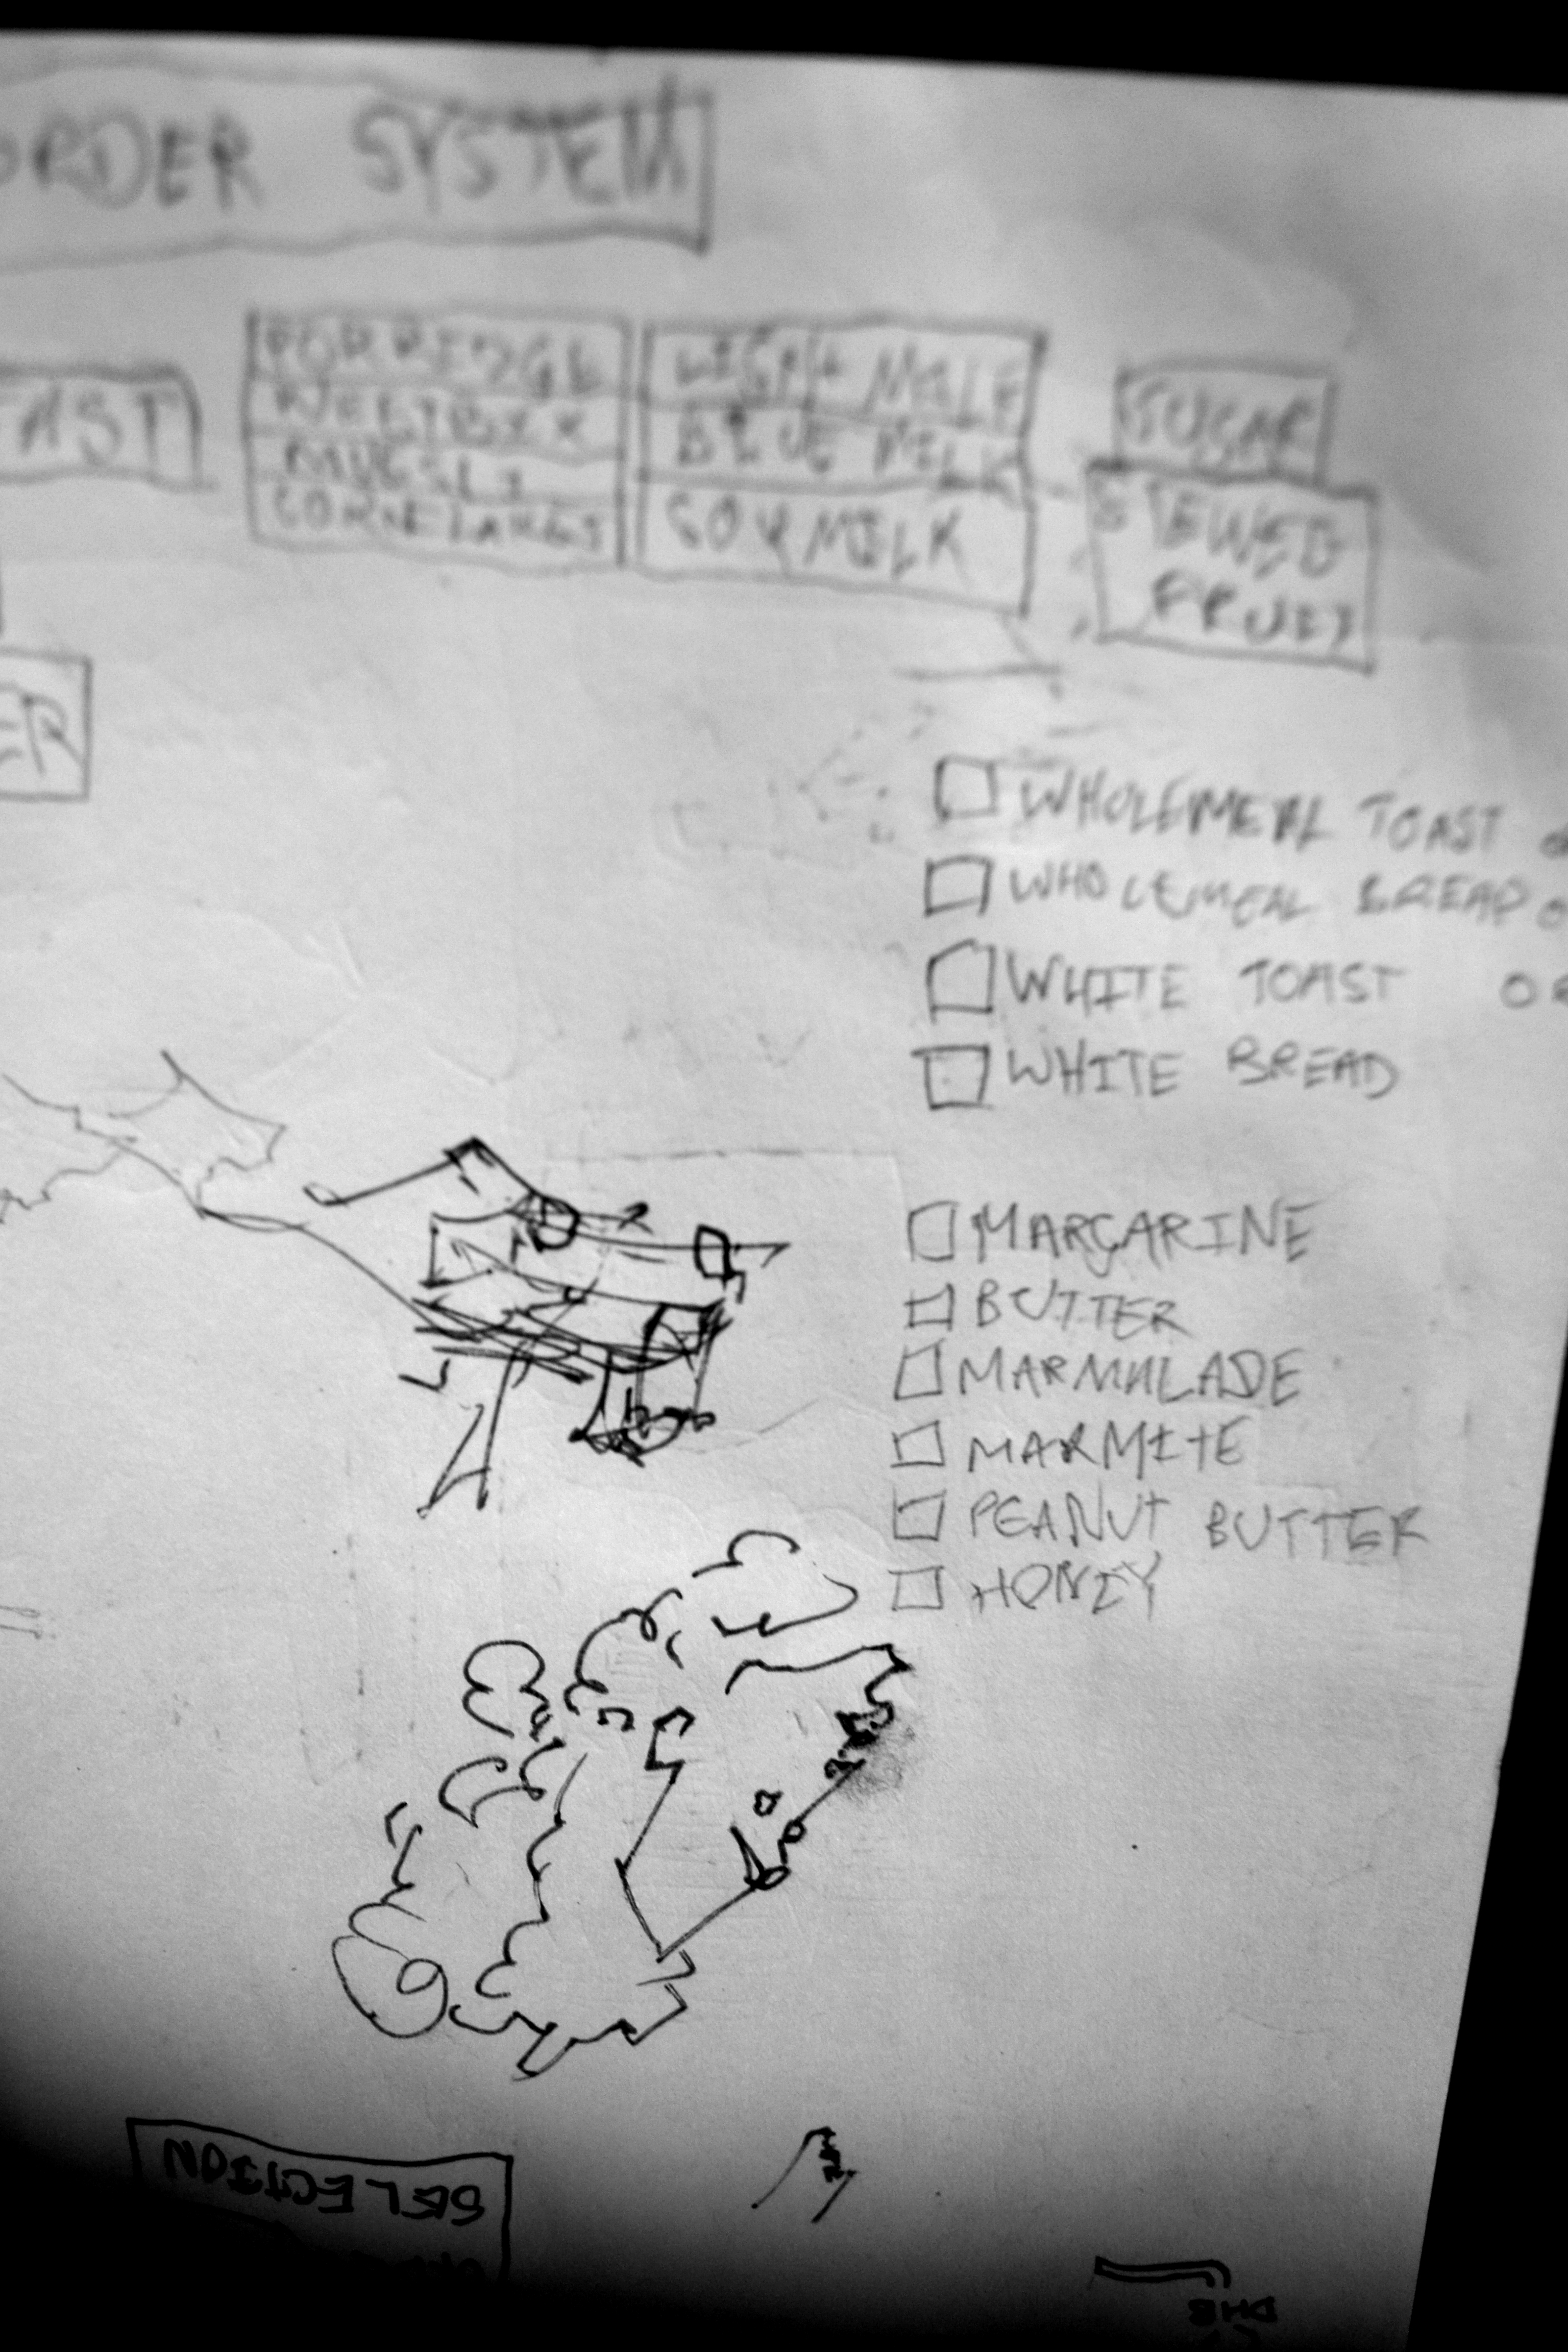 ORDER SYSTEM
FAST
PORRIDGE
WEETBIXX
MUESLI
CORNFLAKES
LIGHT MILK
BLUE MILK
SOY MILK
SUGAR
STEWED
FRUIT
ER
WHOLEMEAL TOAST O
WHOLEMEAL BREAD O
WHITE TOAST OR
WHITE BREAD
MARGARINE
BUTTER
MARMALADE
MARMITE
PEANUT BUTTER
HONEY
SELECTION